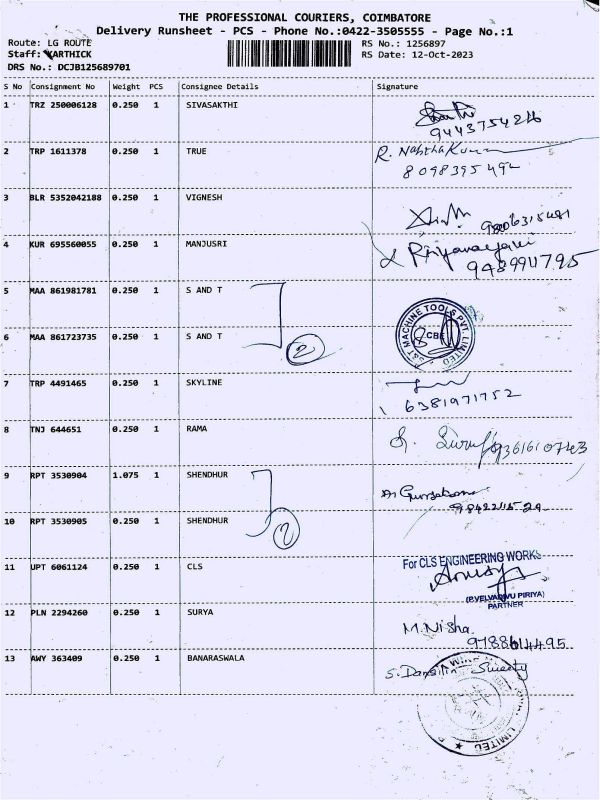 THE PROFESSIONAL COURIERS, COIMBATORE
Delivery Runsheet - PCS - Phone No.:0422-3505555 - Page No.:1
Route: LG ROUTE RS No.: 1256897
Staff: KARTHICK RS Date: 12-Oct-2023
DRS No.: DCJB125689701
S No Consignment No Weight PCS Consignee Details Signature
1 TRZ 250006128 0.250 1 SIVASAKTHI
9443754216
2 TRP 1611378 0.250 1 TRUE R. Nabtha Kumar
8098395492
3 BLR 5352042188 0.250 1 VIGNESH
4 KUR 695560055 0.250 1 MANJUSRI
9489911795
5 MAA 861981781 0.250 1 S AND T
S&T MACHINE TOOLS PVT. LIMITED
CBE
6 MAA 861723735 0.250 1 S AND T
2
7 TRP 4491465 0.250 1 SKYLINE
6381971752
8 TNJ 644651 0.250 1 RAMA
9 RPT 3530904 1.075 1 SHENDHUR
10 RPT 3530905 0.250 1 SHENDHUR
2
11 UPT 6061124 0.250 1 CLS For CLS ENGINEERING WORKS
(P.VELVADIVU PIRIYA)
PARTNER
12 PLN 2294260 0.250 1 SURYA M. Nisha
9788614495
13 AWY 363409 0.250 1 BANARASWALA
LIMITED